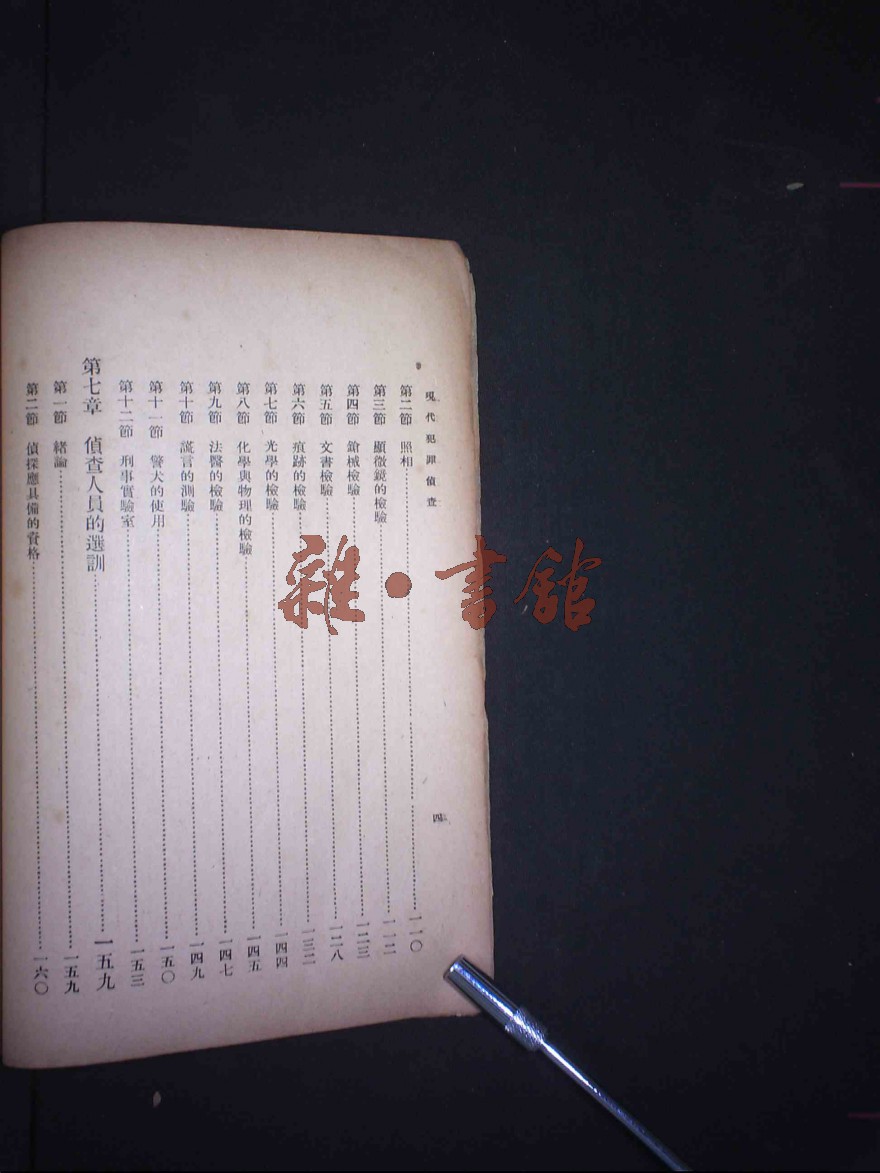 現代犯罪偵查
四
第二節 照相 一一〇
第三節 顯微鏡的檢驗 一一二
第四節 鎗械檢驗 一二三
第五節 文書檢驗 一二八
第六節 痕跡的檢驗 一三二
第七節 光學的檢驗 一四四
第八節 化學與物理的檢驗 一四五
第九節 法醫的檢驗 一四七
第十節 謊言的測驗 一四九
第十一節 警犬的使用 一五〇
第十二節 刑事實驗室 一五三
第七章 偵查人員的選訓 一五九
第一節 緒論 一五九
第二節 偵探應具備的資格 一六〇
雜·書館